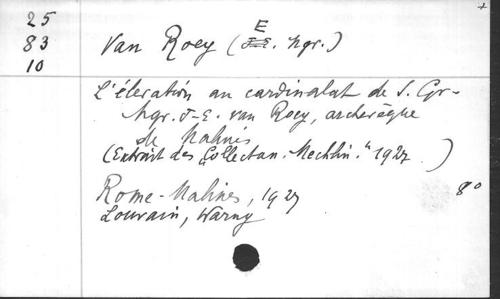 25
83
10
Van Roey (E. Mgr.)
L'élévation au cardinalat de S. Gr.
Mgr. J-E. van Roey, archevêque
de Malines
(Extrait des "Collectan. Mechlin." 1927)
Rome-Malines, 1927
8º
Louvain, Warny